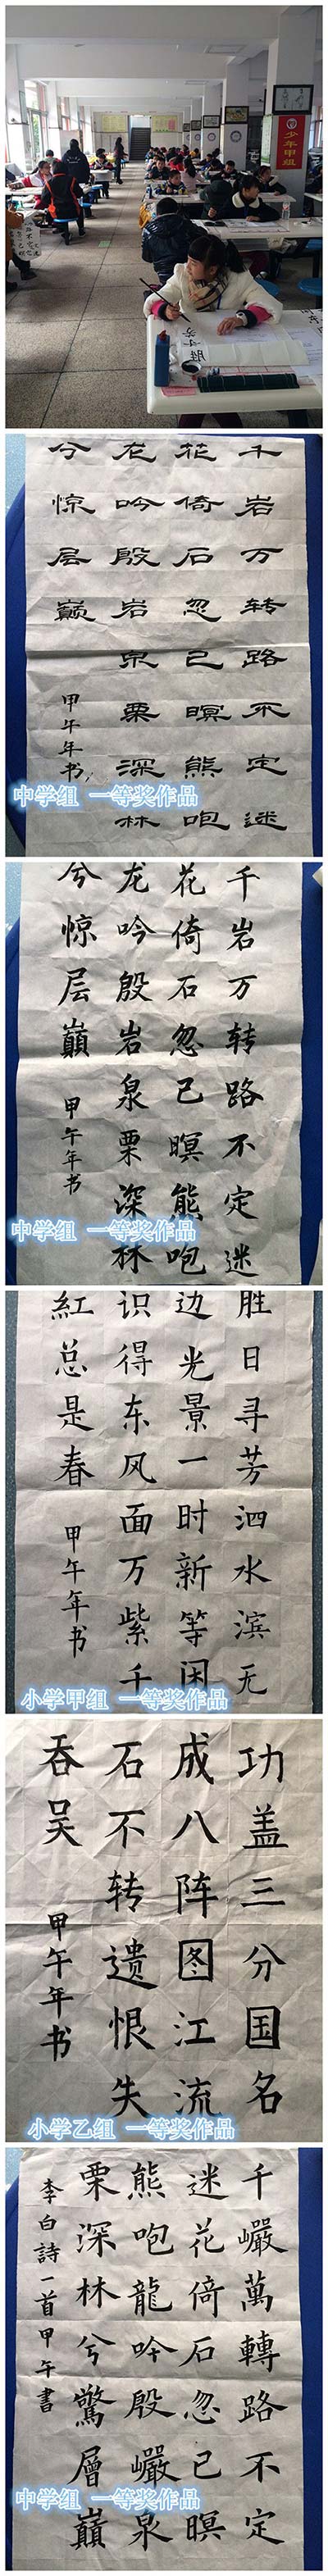 少年甲组
胜
千岩万转路不定迷
花倚石忽已暝熊咆
龙吟殷岩泉栗深林
兮惊层巅
甲午年书
中学组 一等奖作品
千岩万转路不定迷
花倚石忽己暝熊咆
龙吟殷岩泉栗深林
兮惊层巅
甲午年书
中学组 一等奖作品
胜日寻芳泗水滨无
边光景一时新等闲
识得东风面万紫千
紅总是春
甲午年书
小学甲组 一等奖作品
功盖三分国名
成八阵图江流
石不转遗恨失
吞吴
甲午年书
小学乙组 一等奖作品
千巖萬轉路不定
迷花倚石忽已暝
熊咆龍吟殷巖泉
栗深林兮驚層巔
李白詩一首甲午書
中学组 一等奖作品